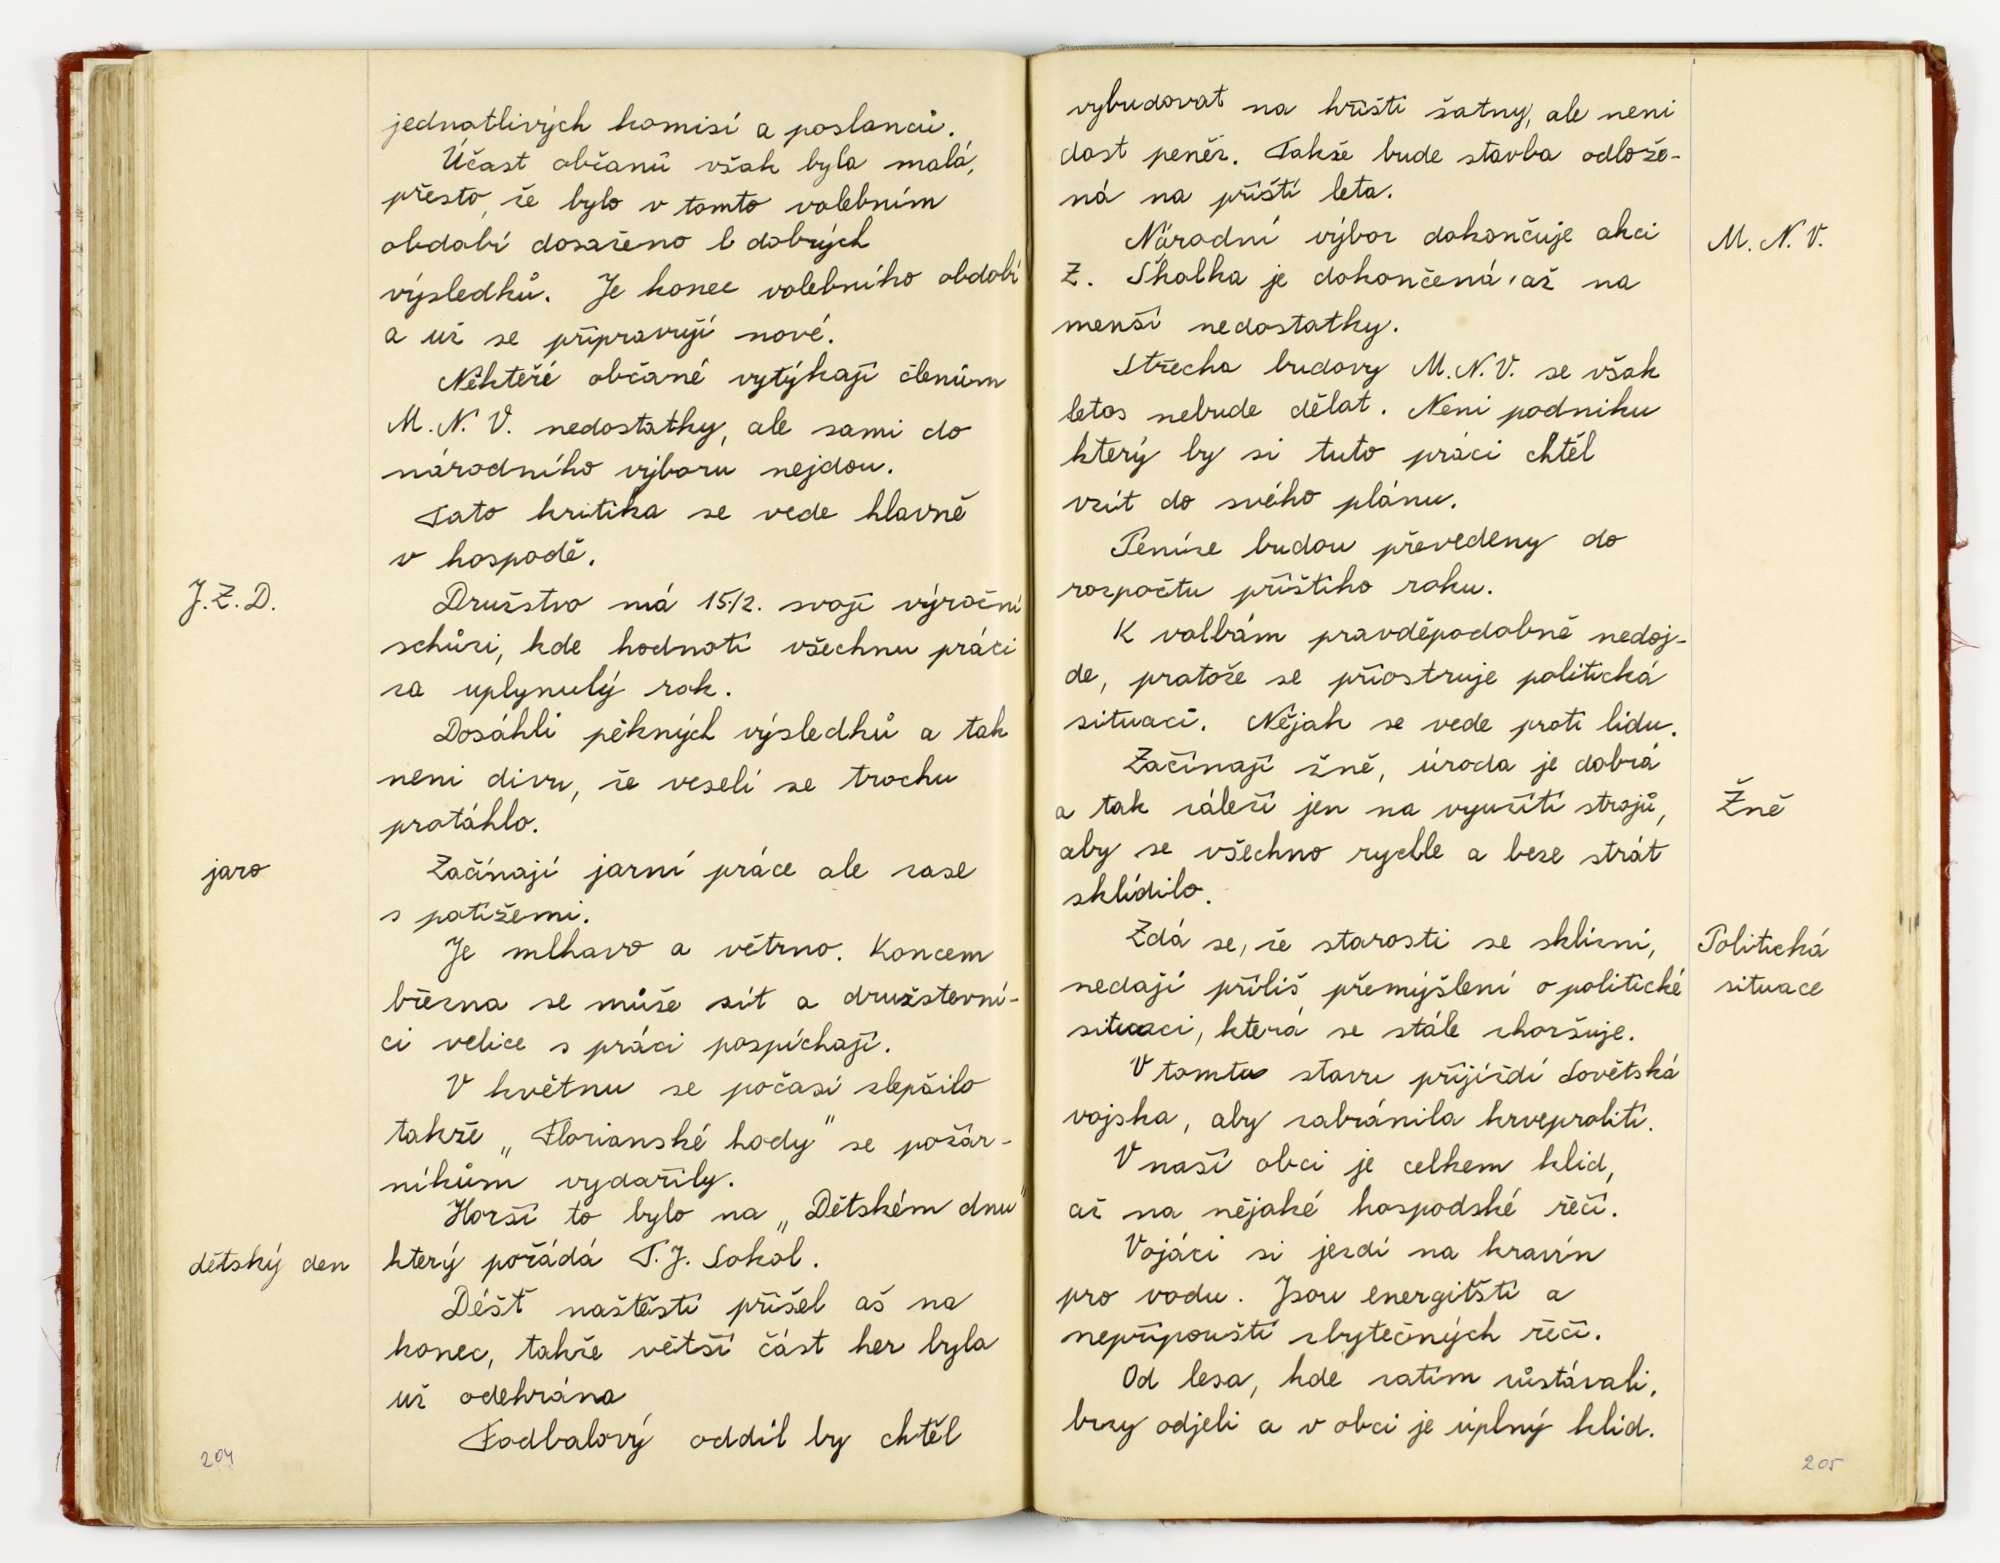 jednotlivých komisí a poslanců.
Účast občanů však byla malá,
přesto, že bylo v tomto volebním
období dosaženo b dobrých
výsledků. Je konec volebního období
a už se připravují nové.
Někteří občané vytýkají členům
M. N. V. nedostatky, ale sami do
národního výboru nejdou.
Tato kritika se vede hlavně
v hospodě.
J.Z.D.
Družstvo má 15./2. svojí výroční
schůzi, kde hodnotí všechnu práci
za uplynulý rok.
Dosáhli pěkných výsledků a tak
není divu, že veselí se trochu
protáhlo.
jaro
Začínají jarní práce ale zase
s potížemi.
Je mlhavo a větrno. Koncem
března se může sít a družstevní-
ci velice s práci pospíchají.
V květnu se počasí zlepšilo
takže „Florianské hody" se požár-
níkům vydařily.
Horší to bylo na „Dětském dnu"
dětský den
který pořádá T.J. Sokol.
Déšť naštěstí přišel až na
konec, takže větší část her byla
už odehrána
Fodbalový oddíl by chtěl
204
vybudovat na hřišti šatny, ale neni
dost peněz. Takže bude stavba odlože-
ná na příští leta.
Národní výbor dokončuje akci
M. N. V.
Z. Školka je dokončená, až na
menší nedostatky.
Střecha budovy M.N.V. se však
letos nebude dělat. Neni podniku
který by si tuto práci chtěl
vzít do svého plánu.
Peníze budou převedeny do
rozpočtu příštího roku.
K volbám pravděpodobně nedoj-
de, protože se přiostruje politická
situací. Nějak se vede proti lidu.
Začínají žně, úroda je dobrá
a tak záleží jen na využití strojů,
Žně
aby se všechno rychle a beze strát
sklidilo.
Zdá se, že starosti se sklizní,
Politická
nedají příliš přemýšlení o politické
situace
situaci, která se stále zhoršuje.
V tomtu stavu přijíždí Sovětská
vojska, aby zabránila krveprolití.
V naší obci je celkem klid,
až na nějaké hospodské řečí.
Vojáci si jezdí na kravín
pro vodu. Jsou energičtí a
nepřipouští zbytečných řečí.
Od lesa, kde zatím zůstávali,
brzy odjeli a v obci je úplný klid.
205